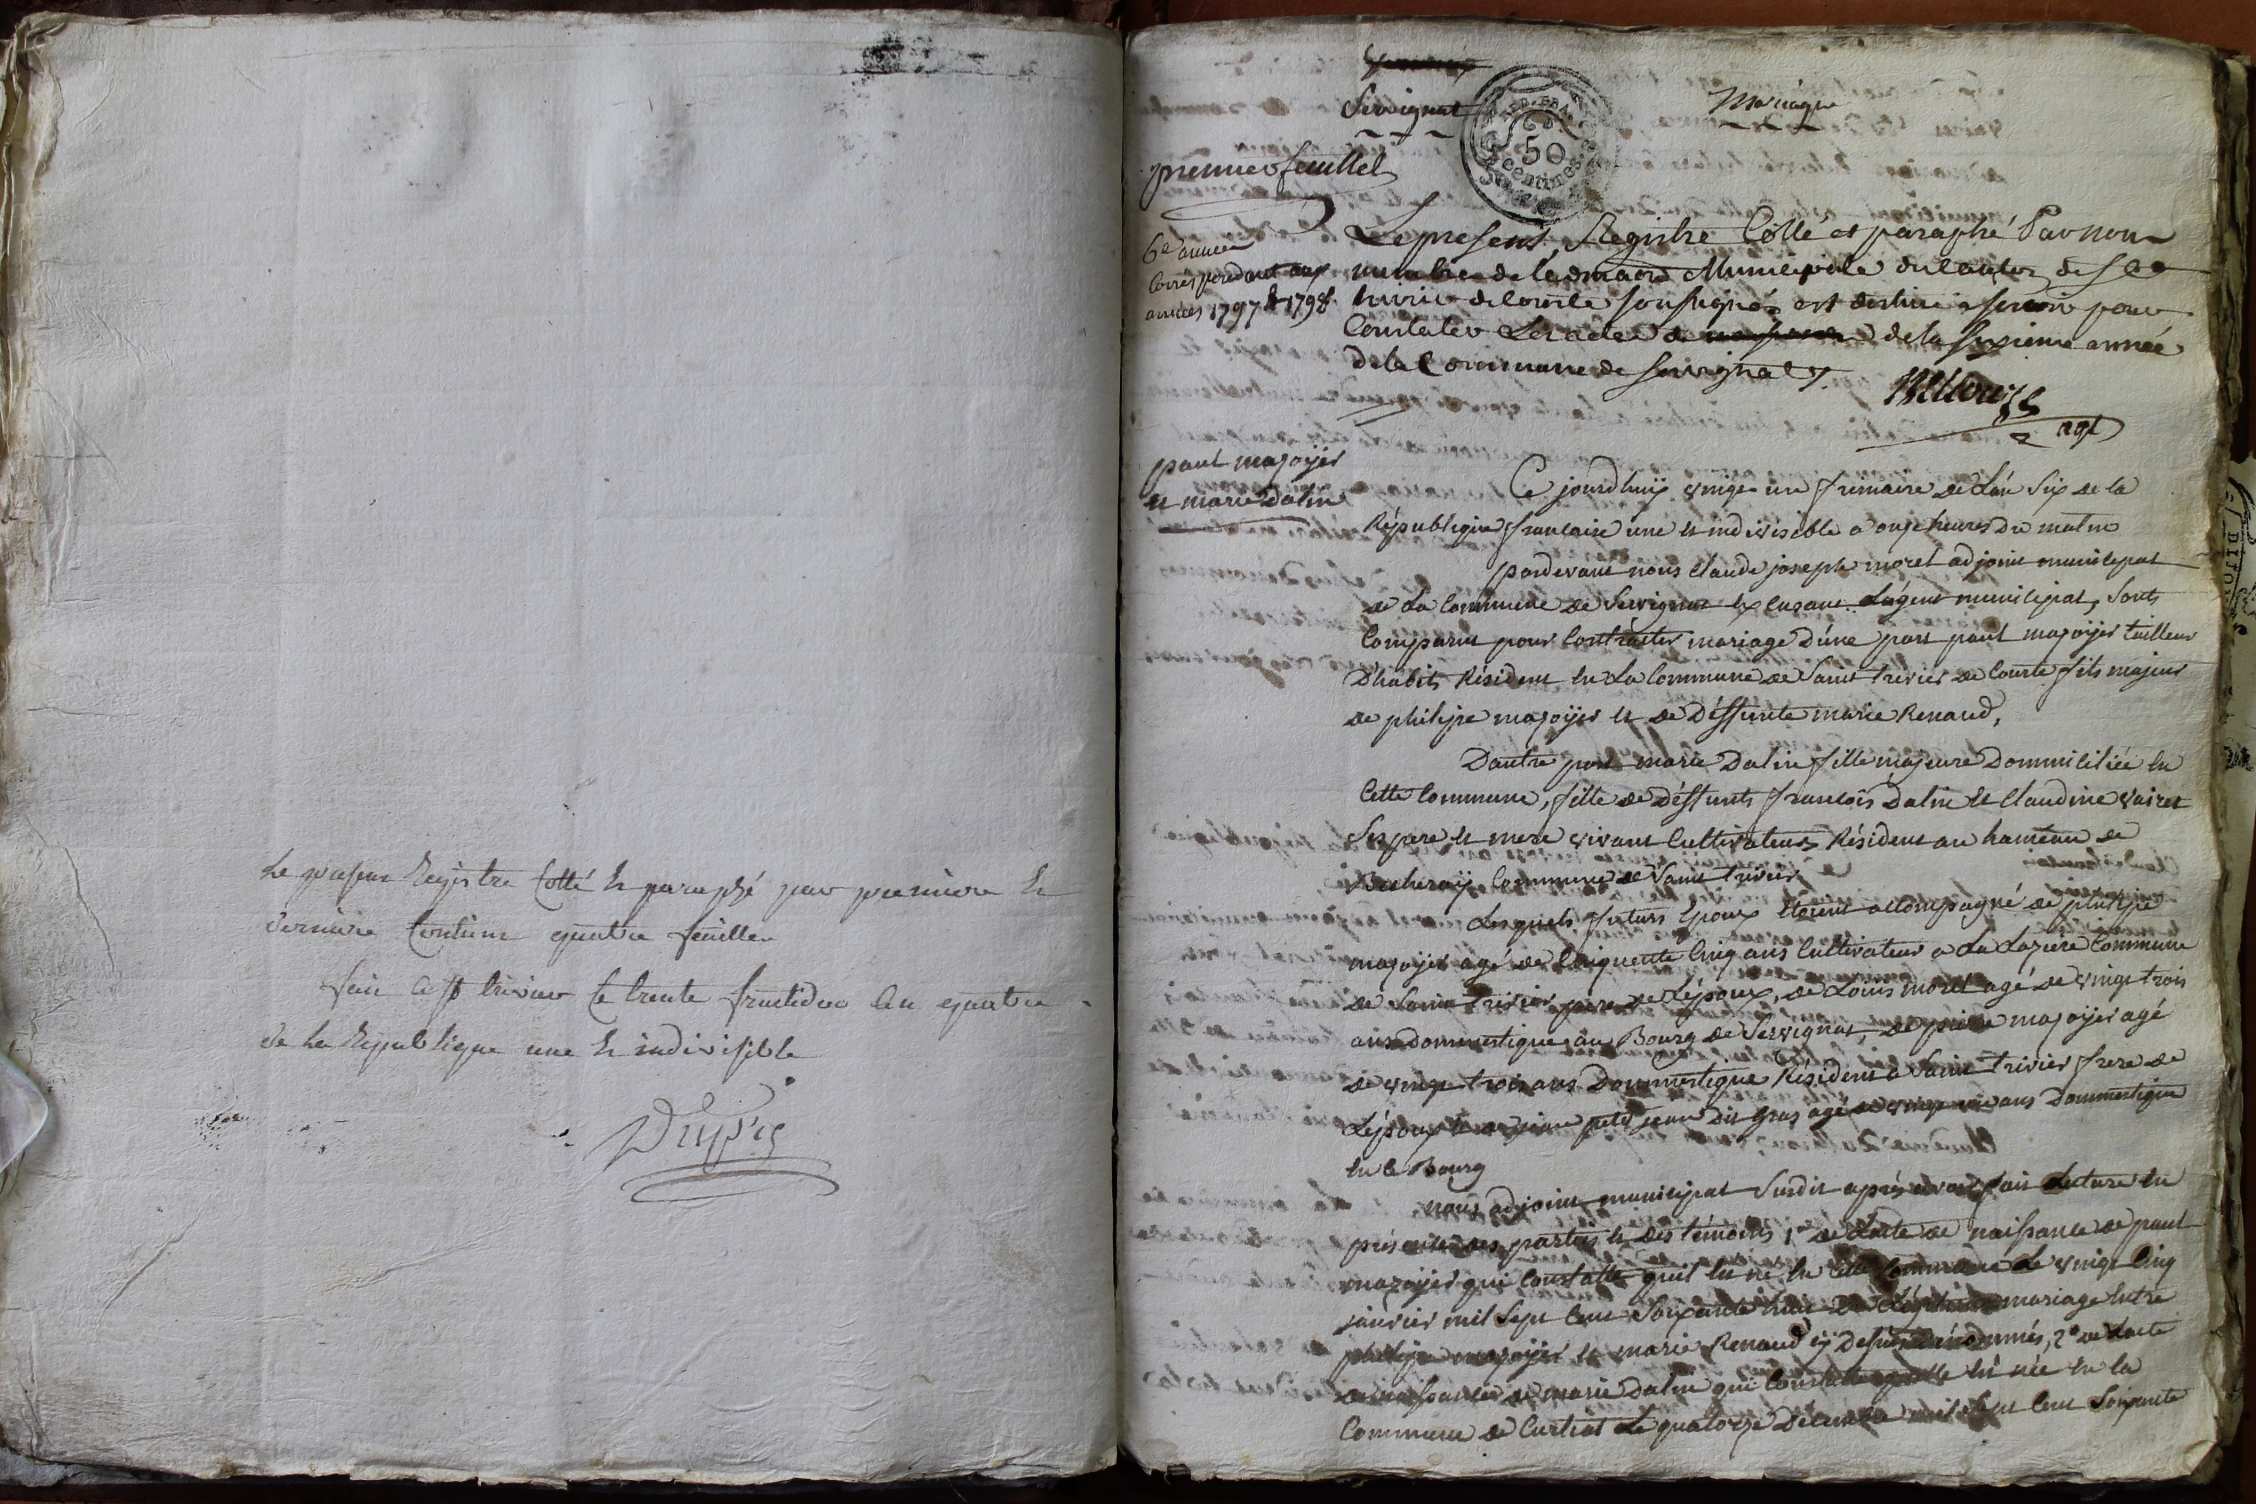 Le present Registre Cotté et paraphé par premiere et
derniere Contient quatre feuilles
fait a st trivier le trente fructidor an quatre
de la Republique une et indivisible
Servignat
Mariage
REP. FRA.
50
centimes
premier feuillet
6e année
Correspondant aux
années 1797 & 1798.
Le present Registre Cotté et paraphé Par nous
membre de Municipale du Canton de St
trivier de Courtes soussigné est destiné a servir pour
Constater Les actes de de la sixieme année
de la Commune de Servignat
agt
paul mazoyer
et marie Dalin
Ce jourdhuy vingt un frimaire de L'an Six de la
République francaise une et indivisible a onze heures du matin
pardevant nous Claude joseph moret adjoint municipal
de La Commune de Servignat L'agent municipal, sont
Comparus pour Contracter mariage d'une part paul mazoyer tailleur
D'habits Résident en La Commune de Saint trivier de Courte fils majeur
de philipe mazoyer et de Déffunte marie Renaud,
D'autre part marie Dalin fille majeure Dommiciliée en
Cette Commune, fille de Déffunts francois Dalin et Claudine vairet
Ses pere et mere vivant Cultivateurs Résident au hameau de
Commune de Saint trivier
Lesquels futurs Epoux etoient accompagné de philipe
mazoyer agé de Cinquente Cinq ans Cultivateur a La Commune
de Saint trivier pere de L'époux, de Louis moret agé de vingt trois
ans dommestique au Bourg de Servignat, de pierre mazoyer agé
de vingt trois ans Dommestique Résident a Saint trivier frere de
L'époux et de petit jean dit Gras agé de vingt ans Dommestique
en ce Bourg
nous adjoint municipal Susdit après avoir fait Lecture en
présence des parties et des témoins 1° de L'acte de naissance de paul
mazoyer qui Constatte qu'il est né en Cette Commune Le vingt Cinq
janvier mil Sept Cent Soixante huit Du Légitime mariage Entre
philipe mazoyer et marie Renaud denommés, 2° de L'acte
de naissance de marie Dalin qui Constatte qu'elle est née en la
Commune de Curciat Le quatorze Décembre mil Sept Cent Soixante